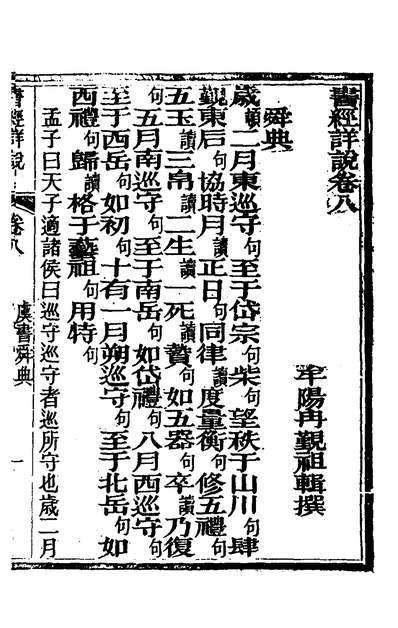 書經詳說卷八
牟陽冉覲祖輯撰
舜典
歲頓二月東巡守句至于岱宗句柴句望秩于山川句肆
覲東后句協時月讀正日句同律讀度量衡句修五禮句
五玉讀三帛讀二生讀一死讀贄句如五器句卒讀乃復
句五月南巡守句至于南岳句如岱禮句八月西巡守句
至于西岳句如初句十有一月朔巡守句至于北岳句如
西禮句歸讀格于藝祖句用特句
孟子曰天子適諸侯曰巡守巡守者巡所守也歲二月
書經詳說
卷八
虞書舜典
一